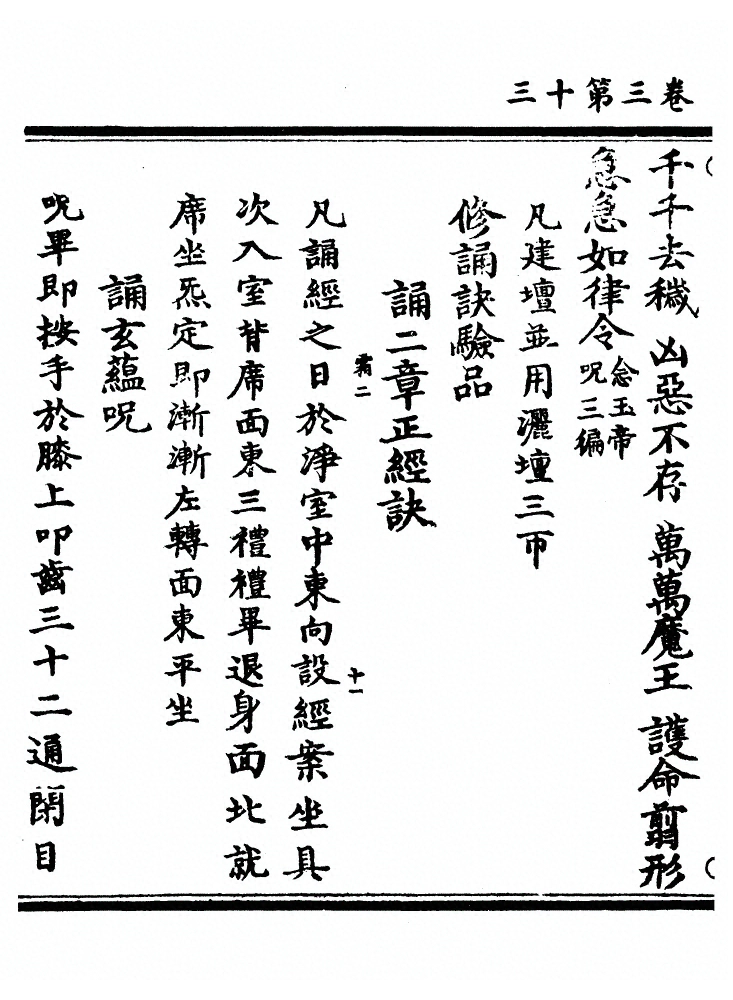 卷三第十三
千千去穢 凶惡不存 萬萬魔王 護命翦形
急急如律令 念玉帝
呪三編
凡建壇並用灑壇三帀
修誦訣驗品
誦二章正經訣
霜二 十一
凡誦經之日於淨室中東向設經案坐具
次入室背席面東三禮禮畢退身面北就
席坐旣定即漸漸左轉面東平坐
誦玄蘊呪
呪畢即按手於膝上叩齒三十二通閉目